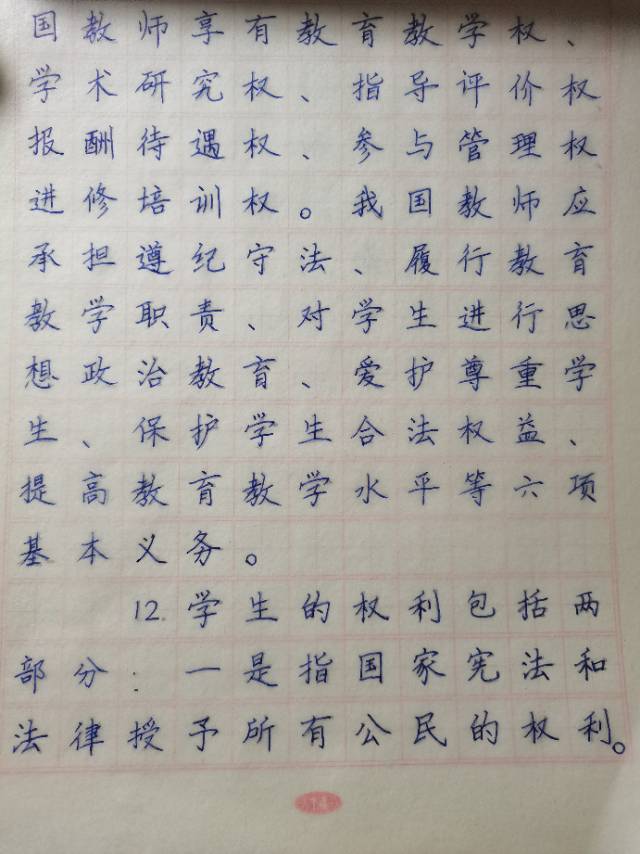 国教师享有教育教学权、
学术研究权、指导评价权
报酬待遇权、参与管理权
进修培训权。我国教师应
承担遵纪守法、履行教育
教学职责、对学生进行思
想政治教育、爱护尊重学
生、保护学生合法权益、
提高教育教学水平等六项
基本义务。
12.学生的权利包括两
部分：一是指国家宪法和
法律授予所有公民的权利。